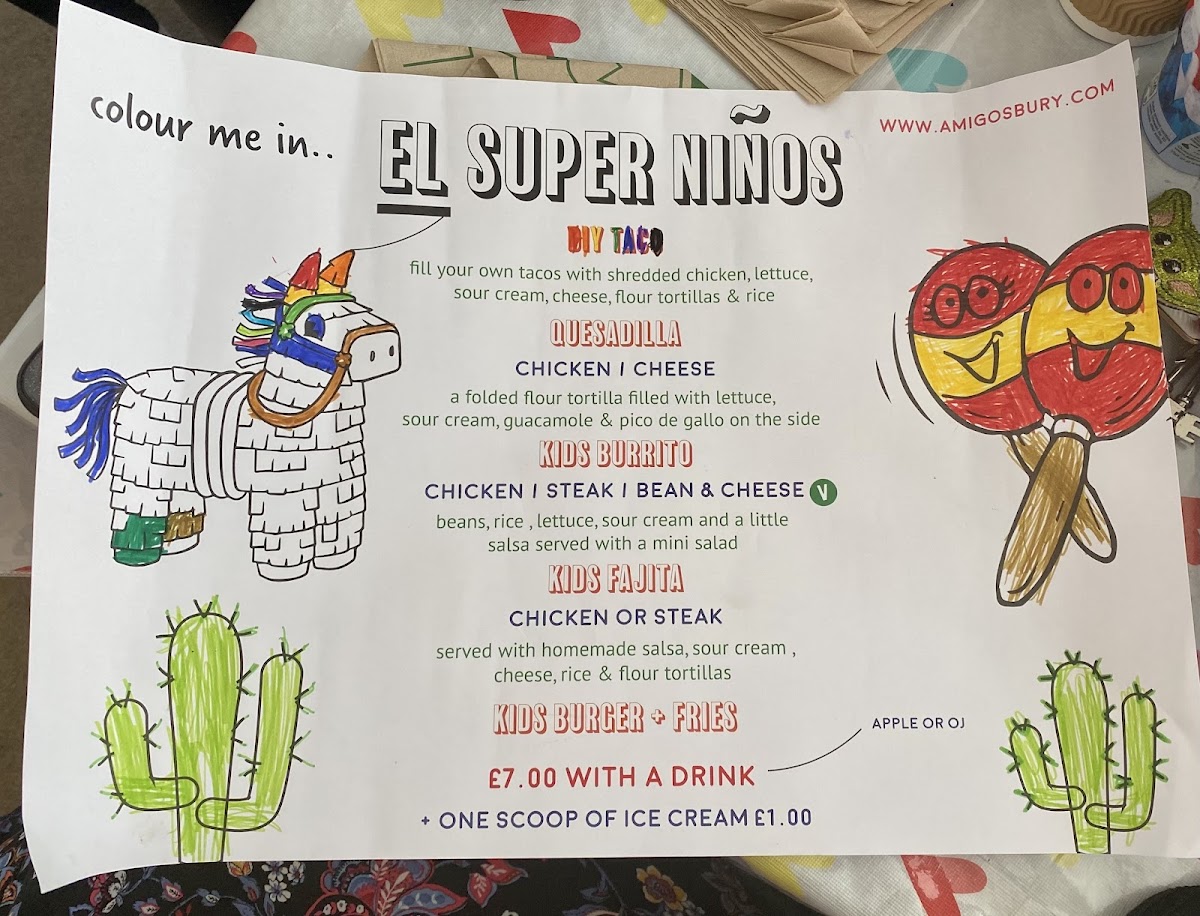 colour me in..
EL SUPER NIÑOS
WWW.AMIGOSBURY.COM
DIY TACO
fill your own tacos with shredded chicken, lettuce,
sour cream, cheese, flour tortillas & rice
QUESADILLA
CHICKEN | CHEESE
a folded flour tortilla filled with lettuce,
sour cream, guacamole & pico de gallo on the side
KIDS BURRITO
CHICKEN | STEAK | BEAN & CHEESE V
beans, rice , lettuce, sour cream and a little
salsa served with a mini salad
KIDS FAJITA
CHICKEN OR STEAK
served with homemade salsa, sour cream ,
cheese, rice & flour tortillas
KIDS BURGER + FRIES
APPLE OR OJ
£7.00 WITH A DRINK
+ ONE SCOOP OF ICE CREAM £1.00